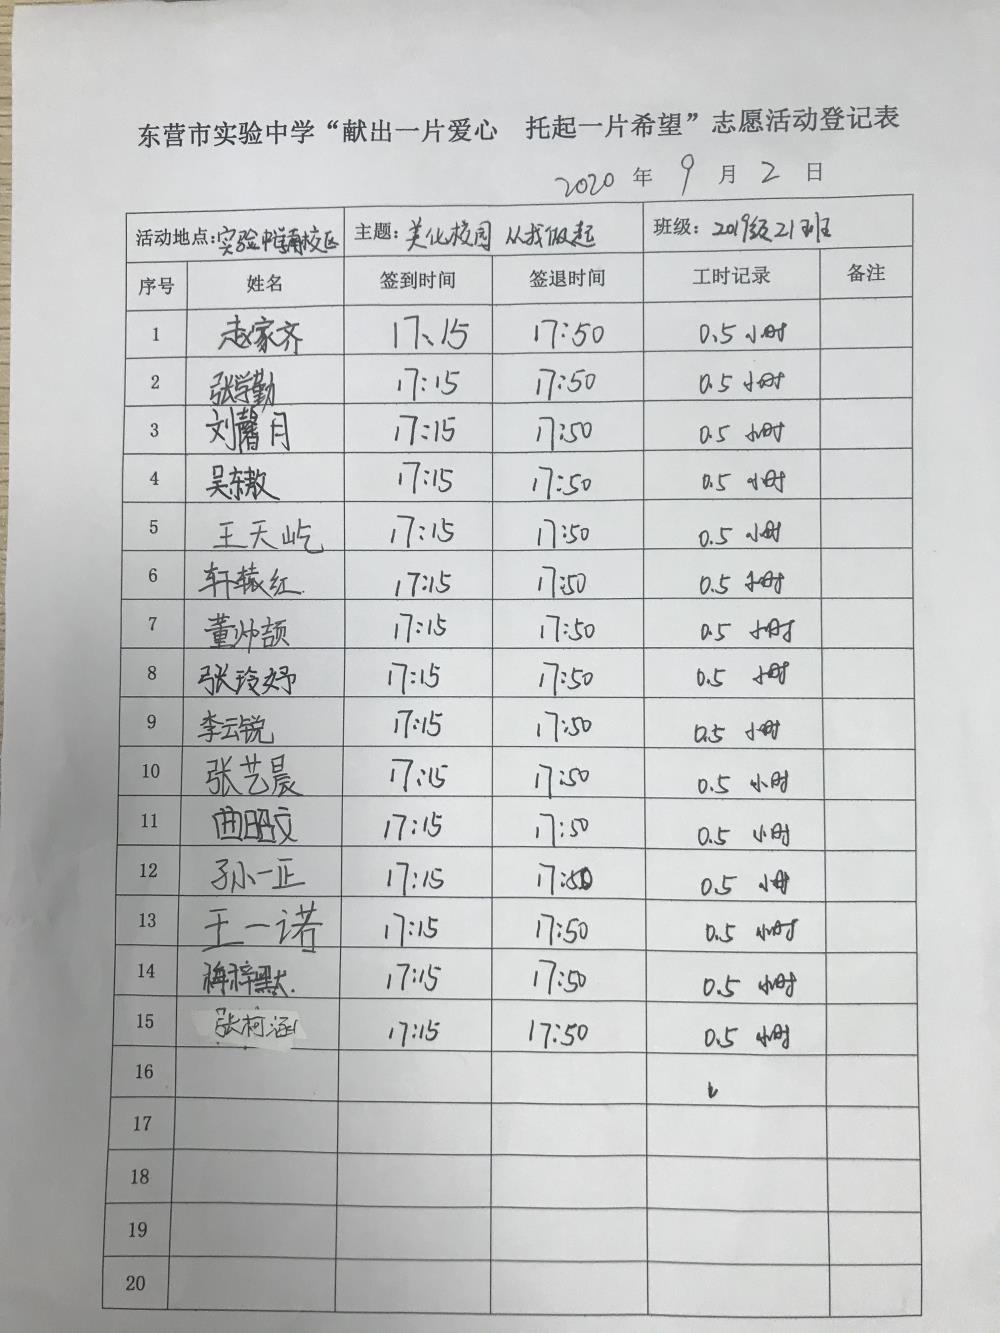 东营市实验中学“献出一片爱心 托起一片希望”志愿活动登记表
2020 年 9 月 2 日
活动地点:实验中学南校区 主题:美化校园 从我做起 班级:2019级21班
序号 姓名 签到时间 签退时间 工时记录 备注
1 赵家齐 17、15 17:50 0.5 小时
2 张学勤 17:15 17:50 0.5 小时
3 刘馨月 17:15 17:50 0.5 小时
4 吴东敖 17:15 17:50 0.5 小时
5 王天屹 17:15 17:50 0.5 小时
6 轩辕红 17:15 17:50 0.5 小时
7 董帅颉 17:15 17:50 0.5 小时
8 张玲妤 17:15 17:50 0.5 小时
9 李云锐 17:15 17:50 0.5 小时
10 张艺晨 17:15 17:50 0.5 小时
11 曲昭文 17:15 17:50 0.5 小时
12 孙一正 17:15 17:50 0.5 小时
13 王一诺 17:15 17:50 0.5 小时
14 17:15 17:50 0.5 小时
15 张柯涵 17:15 17:50 0.5 小时
16
17
18
19
20